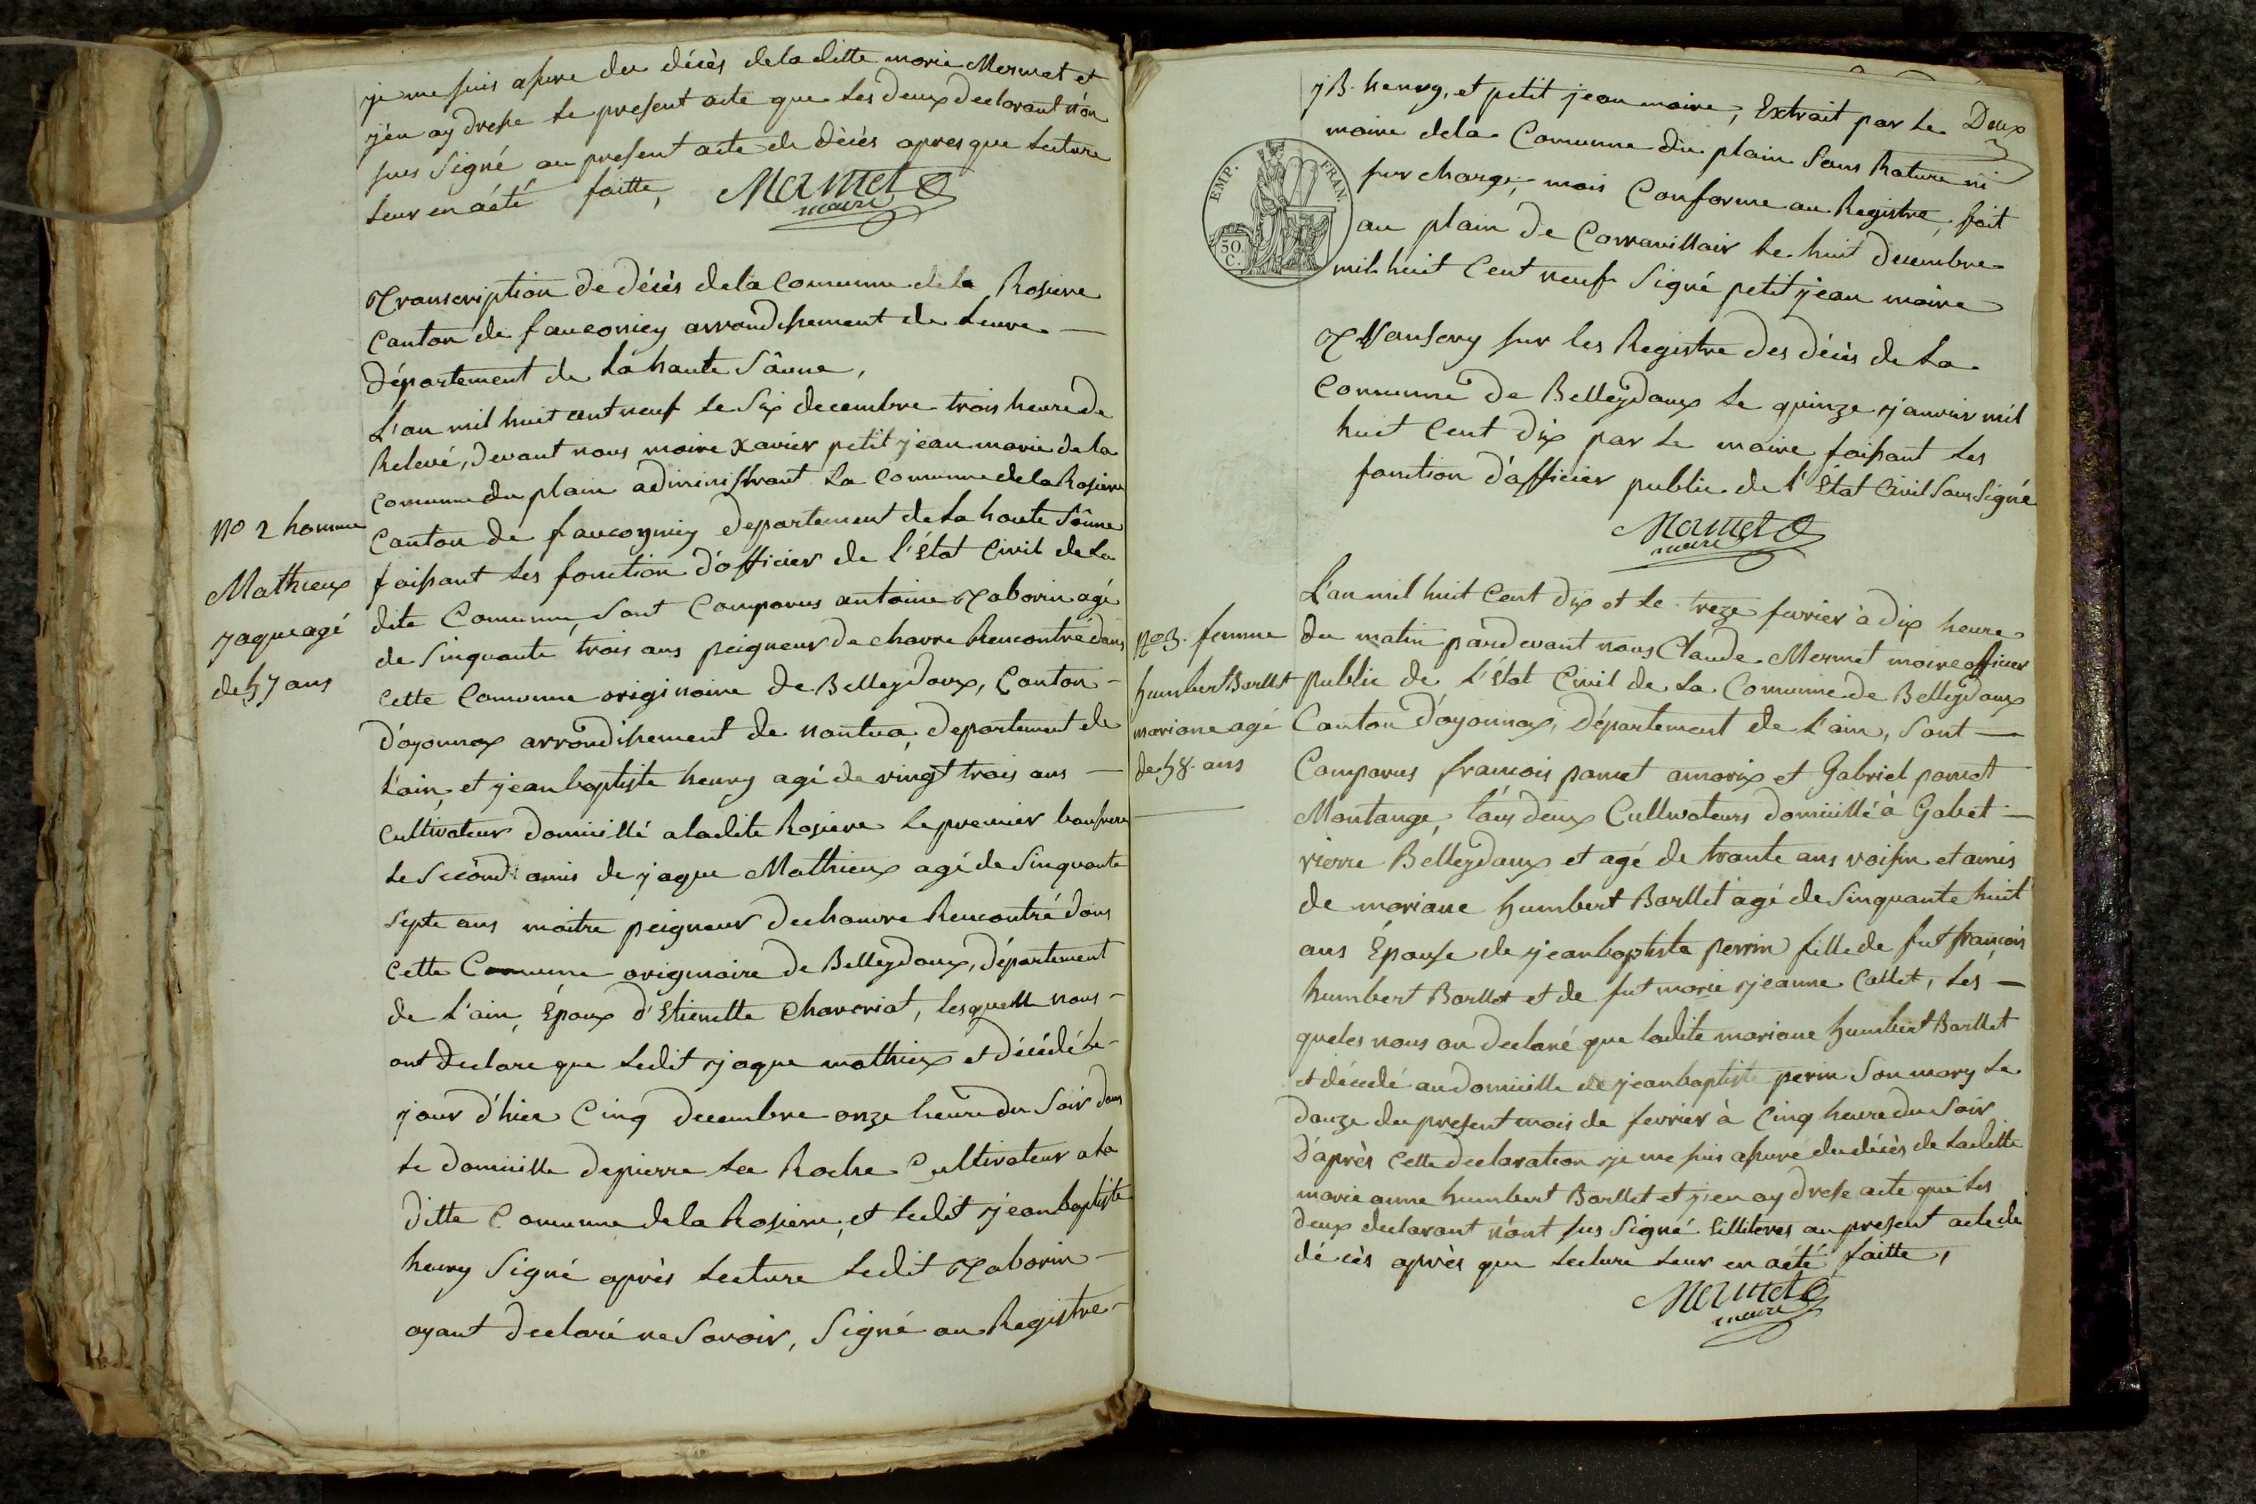 je me suis assure du décès de la ditte marie Mermet et
j'en ay dresse le present acte que les deux declarant n'on
sus signé au present acte de décès apres que lecture
leur en a été faitte, Mermet
maire
Transcription de décès de la Comunne de la Rosiere
Canton de fauconiey arrondissement de Lure
Département de la haute Sâune,
L'an mil huit cent neuf le Six decembre trois heure de
Relevé, devant nous maire Xavier petit jean marie de la
Comune du plain administrant la Comunne de la Rosiere
Canton de faucogniey departement de la haute Sâune
faissant les fonction d'officier de l'état Civil de la
dite Comunne, Sont Comparus antoine Taborin agé
de Sinquante trois ans peigneur de chavre Rencontré dans
cette Comunne originaire de Belleydoux, Canton
d'oyonnax arrondissement de nantua, departement de
l'ain, et jean baptiste henry agé de vingt trois ans
Cultivateur domicillé a ladite Rosiere le premier baufrere
le Second amis de jaque Mathieux agé de Sinquante
Septe ans maitre peigneur de chanvre Rencontré dans
Cette Comunne originaire de Belleydoux, département
de L'ain, Époux d'Etienette Chavériat, lesquell nous
ont declare que ledit jaque mathieux et décédé le
jour d'hier Cinq decembre onze heure du Soir dans
le domicille de pierre la Roche Cultivateur a la
ditte Comunne de la Rosiere, et ledit jean baptiste
henry Signé après lecture ledit Taborin
ayant declaré ne Savoir, Signé au Registre
no 2 homme
Mathieux
jaque agé
de 57 ans
j B. henry, et petit jean maire, Extrait par le
Deux
maire de la Comunne du plain Sans Rature ni
sur charge, mais Conforme au Registre, fait
au plain de Corravillair le huit decembre
mil huit Cent neuf Signé petit jean maire
EMP. FRAN.
50
C.
Transcry sur les Registre des décès de la
Comunne de Belleydoux le quinze janvier mil
huit Cent dix par le maire faissant les
fonction d'afficier public de l'État Civil Sousigné
Mermet
maire
L'an mil huit Cent dix et le treze fevrier à dix heure
du matin pardevant nous Claude Mermet maire officier
public de L'état Civil de la Comunne de Belleydoux
Canton d'oyonnax, Département de L'ain, Sont
Comparus francois pancet amorix et Gabriel poncet
Montange, tous deux Cultivateurs domicillé à Gobet
vierre Belleydoux et agé de trante ans voisin et amis
de mariane humbert Barllet agé de Sinquante huit
ans Épouse de jean baptiste perrin fille de fut francois
humbert Barllet et de fut marie jeanne Callet, les
queles nous on declaré que ladite mariane humbert Barllet
et décédé au domicille de jean baptiste perrin Son mary le
douze du present mois de fevrier à Cinq heure du Soir
D'après Cette declaration je me suis assuré du décès de laditte
marie anne humbert Barllet et j'en ay dresse acte que les
deux declarant n'ont sus Signé illiteres au present acte de
décès après que lecture leur en a été faitte,
Mermet
maire
no 3. femme
humbert Barllet
mariane agé
de 58. ans